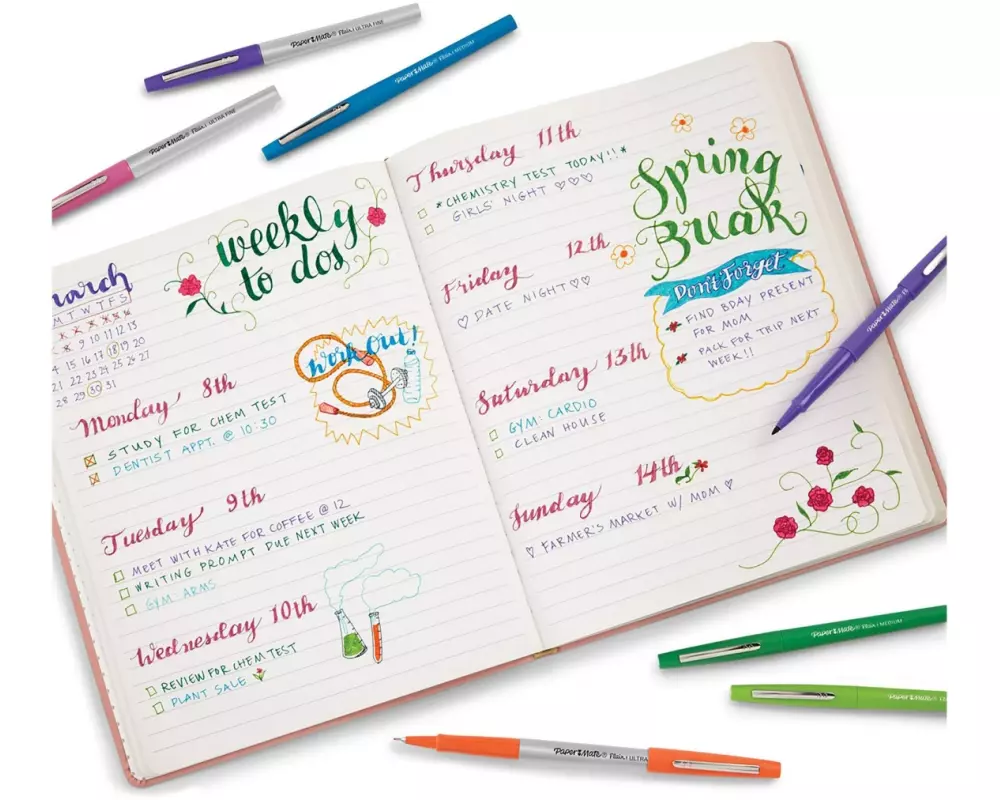 Paper Mate® Flair ULTRA FINE
Paper Mate® Flair MEDIUM
Paper Mate® Flair ULTRA FINE
weekly
to dos
march
M T W T F S
9 10 11 12 13
14 15 16 17 18 19 20
21 22 23 24 25 26 27
28 29 30 31
Monday 8th
STUDY FOR CHEM TEST
DENTIST APPT. @ 10:30
Work Out!
Tuesday 9th
MEET WITH KATE FOR COFFEE @ 12
WRITING PROMPT DUE NEXT WEEK
GYM: ARMS
Wednesday 10th
REVIEW FOR CHEM TEST
PLANT SALE
Thursday 11th
*CHEMISTRY TEST TODAY!!*
GIRLS' NIGHT ♡♡♡
Friday 12th
♡ DATE NIGHT ♡♡
Saturday 13th
GYM: CARDIO
CLEAN HOUSE
Sunday 14th
♡ FARMER'S MARKET W/ MOM ♡
Spring
Break
Don't Forget
FIND BDAY PRESENT
FOR MOM
PACK FOR TRIP NEXT
WEEK!!
Paper Mate®
Paper Mate® Flair MEDIUM
Paper Mate® Flair
Paper Mate® Flair ULTRA